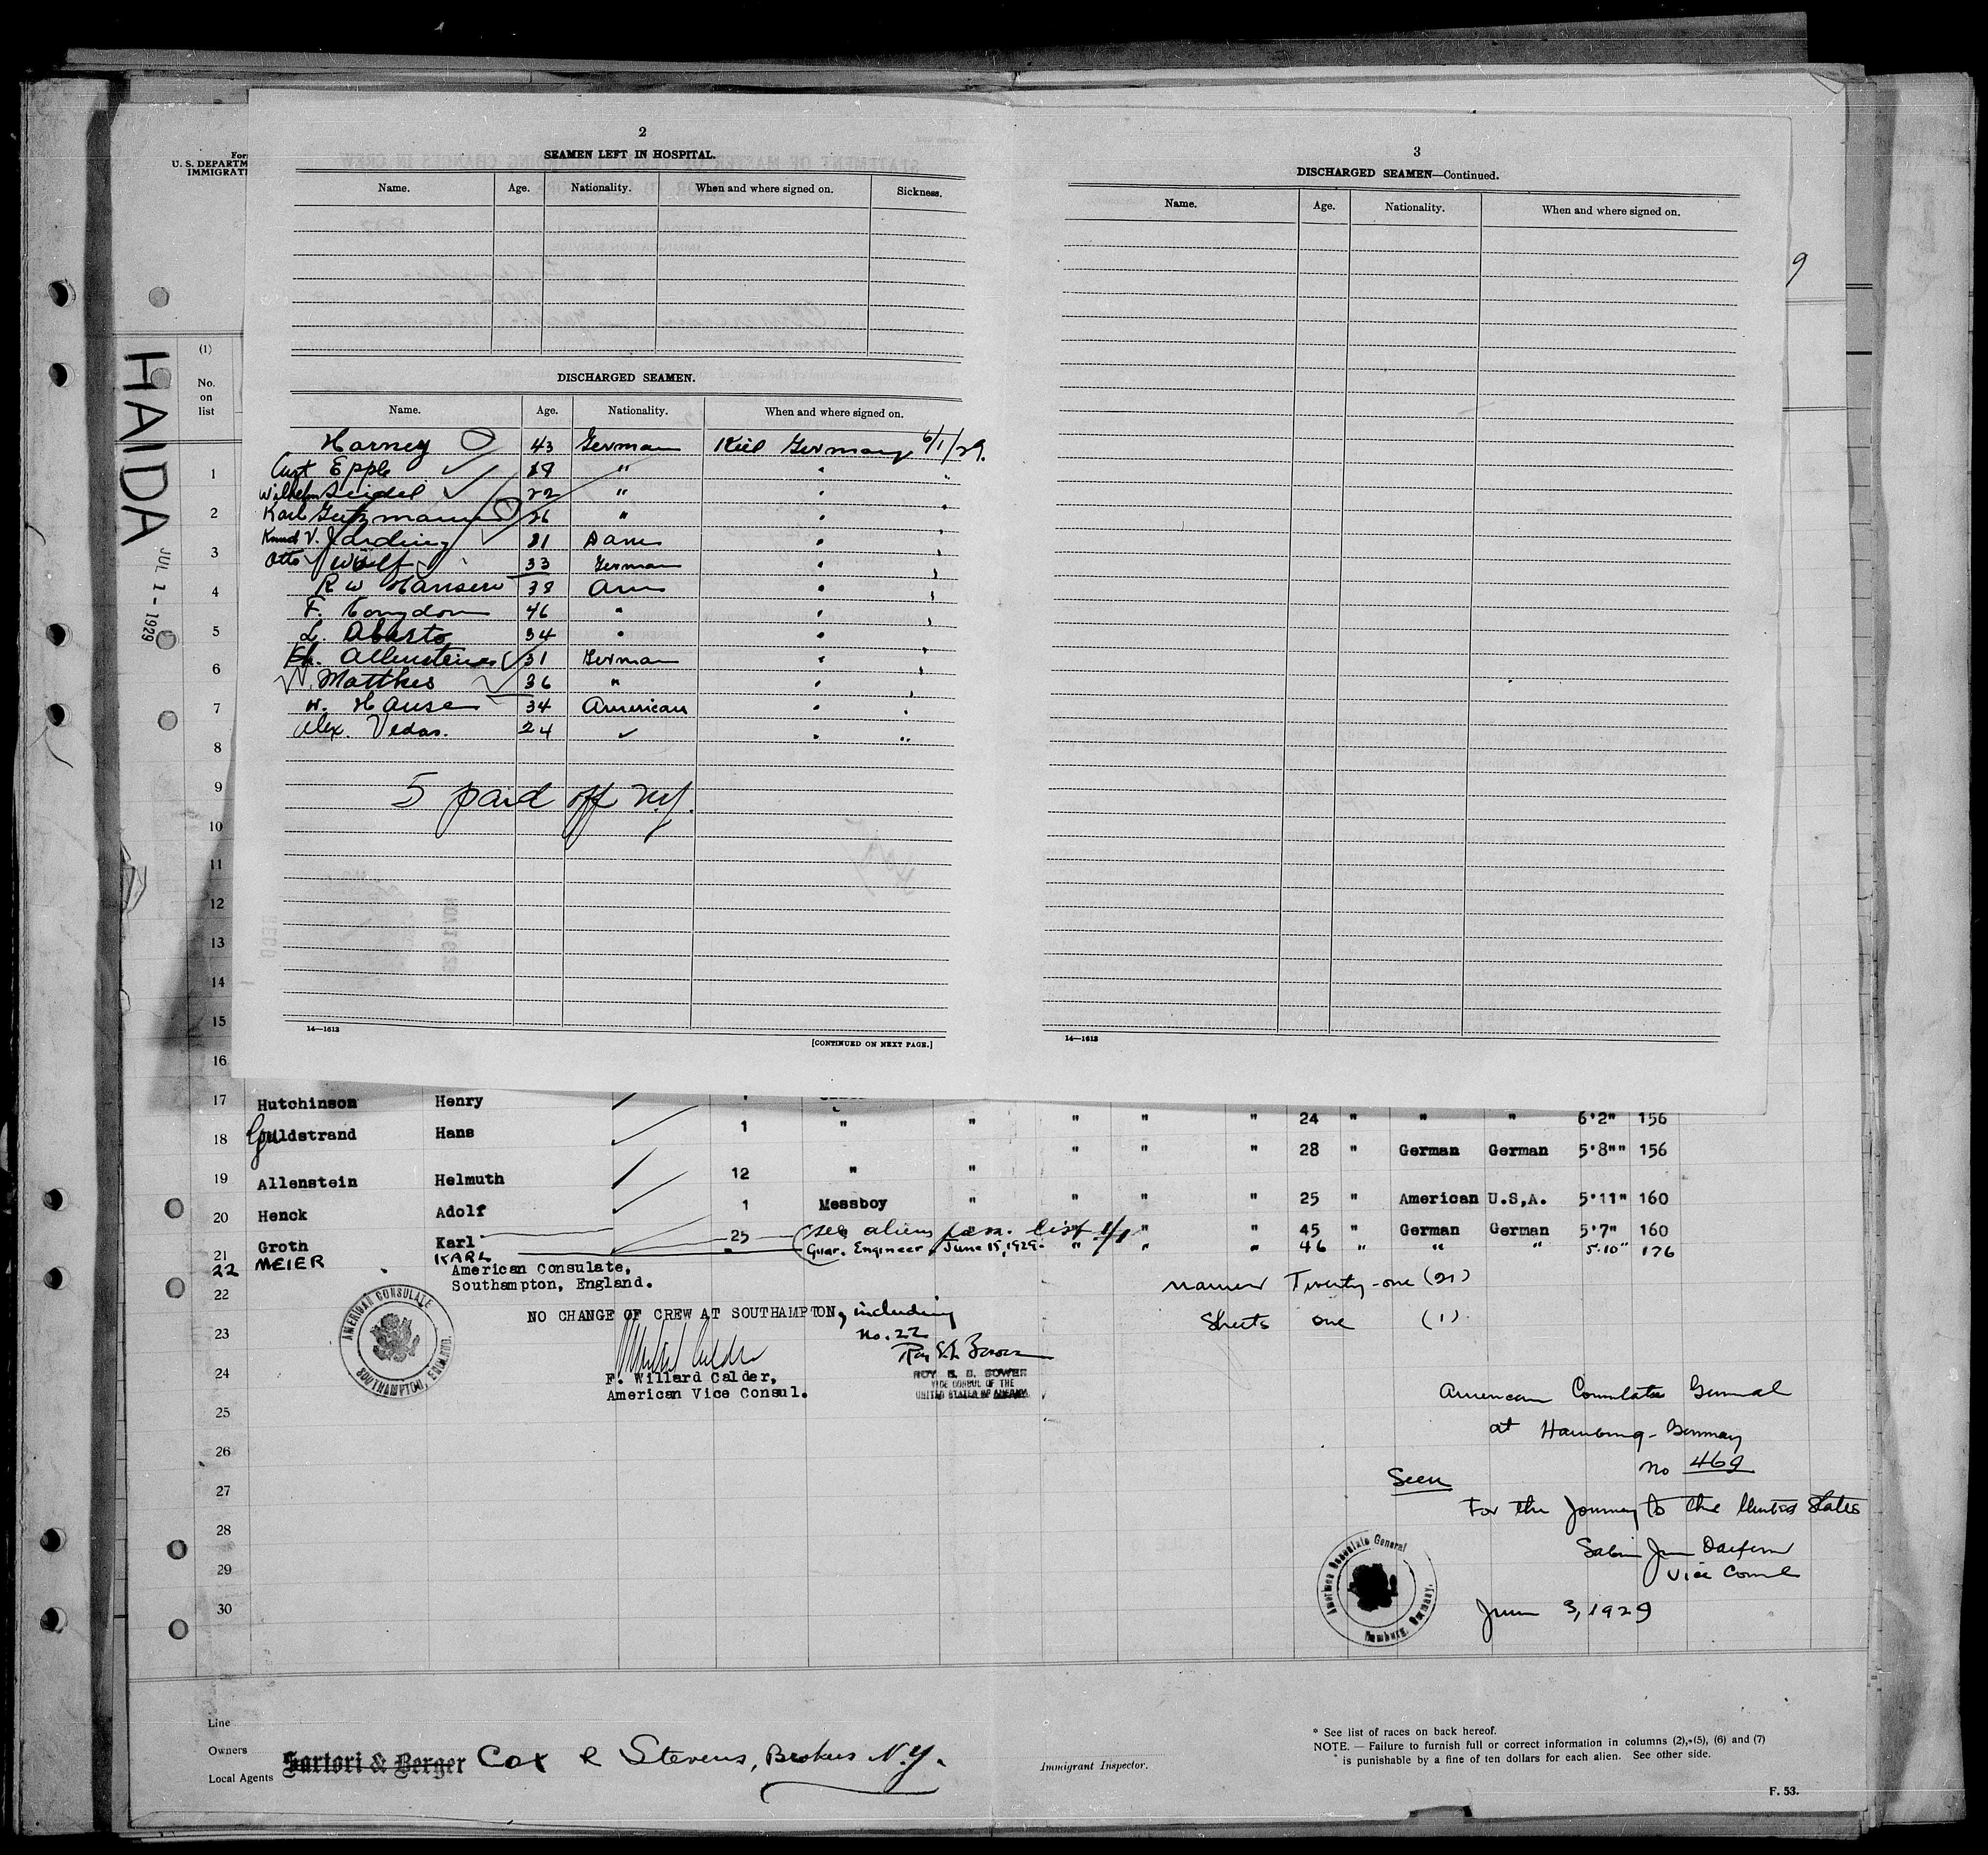 For
U. S. DEPARTM
IMMIGRAT
HAIDA
JUL 1 - 1929
(1)
No.
on
list
2
SEAMEN LEFT IN HOSPITAL.
Name. Age. Nationality. When and where signed on. Sickness.
DISCHARGED SEAMEN.
Name. Age. Nationality. When and where signed on.
Harney 43 German Kiel Germany 6/1/29.
Epple "
Wilhelm Seidel 22 "
Karl Gutzmann 26 "
V. Jarding Dane
Otto Wulf 33 German
R W Hansen 38 Am
F. Congdon 46 "
L. Abarto 34 "
Allenstein 31 German
W. Matthes 36 "
H. Hansen 34 American
Alex. Vedas. 24
5 paid off N.Y.
14—1613
[CONTINUED ON NEXT PAGE.]
3
DISCHARGED SEAMEN—Continued.
Name. Age. Nationality. When and where signed on.
14—1613
9
1
2
3
4
5
6
7
8
9
10
11
12
13
14
15
16
17 Hutchinson Henry " " " " " 24 " " " 6'2" 156
18 Guldstrand Hans 1 " " " " " 28 " German German 5'8"" 156
19 Allenstein Helmuth 12 " " " " " 25 " American U.S,A. 5'11" 160
20 Henck Adolf 1 Messboy " " " " 45 " German German 5'7" 160
21 Groth Karl 25 (see aliens pass. list 1/1
22 MEIER KARL Guar. Engineer, June 15, 1929. " " " 46 " " " 5.10" 176
American Consulate,
Southampton, England.
names Twenty-one (21)
22
NO CHANGE OF CREW AT SOUTHAMPTON, including
No. 22
Sheets one (1)
23
AMERICAN CONSULATE
SOUTHAMPTON, ENGLAND.
24
F. Willard Calder,
American Vice Consul.
ROY E. B. BOWER
VICE CONSUL OF THE
UNITED STATES OF AMERICA
25
American Consulate General
at Hamburg - Germany
26
No 469
27
Seen
For the Journey to the United States
28
29
Vice Consul
30
American Consulate General
Hamburg, Germany.
June 3, 1929
Line
Owners
Local Agents Sartori & Berger Cox & Stevens, Brokers N.Y.
Immigrant Inspector.
* See list of races on back hereof.
NOTE. — Failure to furnish full or correct information in columns (2), (5), (6) and (7)
is punishable by a fine of ten dollars for each alien. See other side.
F. 53.